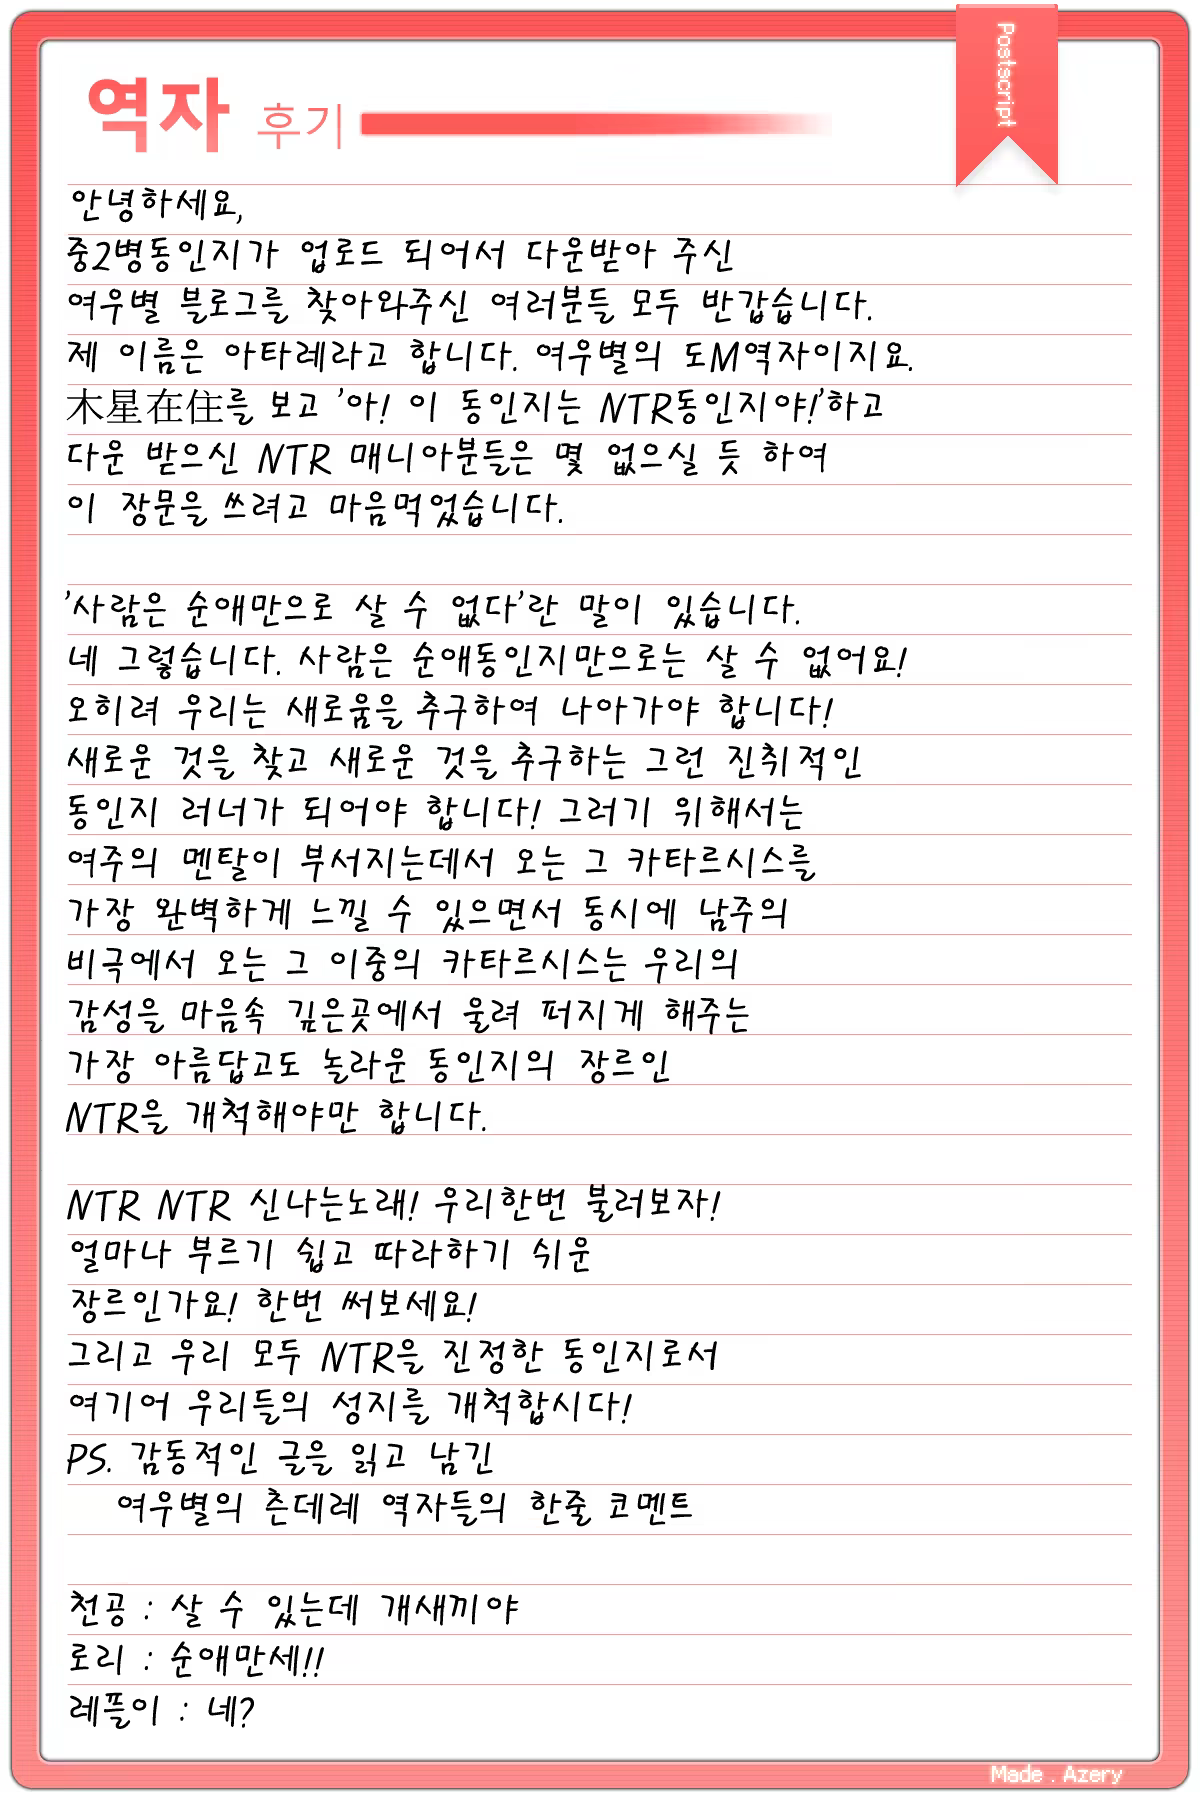 Postscript
역자 후기
안녕하세요,
중2병동인지가 업로드 되어서 다운받아 주신
여우별 블로그를 찾아와주신 여러분들 모두 반갑습니다.
제 이름은 아타레라고 합니다. 여우별의 도M역자이지요.
木星在住를 보고 '아! 이 동인지는 NTR동인지야!'하고
다운 받으신 NTR 매니아분들은 몇 없으실 듯 하여
이 장문을 쓰려고 마음먹었습니다.
'사람은 순애만으로 살 수 없다'란 말이 있습니다.
네 그렇습니다. 사람은 순애동인지만으로는 살 수 없어요!
오히려 우리는 새로움을 추구하여 나아가야 합니다!
새로운 것을 찾고 새로운 것을 추구하는 그런 진취적인
동인지 러너가 되어야 합니다! 그러기 위해서는
여주의 멘탈이 부서지는데서 오는 그 카타르시스를
가장 완벽하게 느낄 수 있으면서 동시에 남주의
비극에서 오는 그 이중의 카타르시스는 우리의
감성을 마음속 깊은곳에서 울려 퍼지게 해주는
가장 아름답고도 놀라운 동인지의 장르인
NTR을 개척해야만 합니다.
NTR NTR 신나는노래! 우리한번 불러보자!
얼마나 부르기 쉽고 따라하기 쉬운
장르인가요! 한번 써보세요!
그리고 우리 모두 NTR을 진정한 동인지로서
여기어 우리들의 성지를 개척합시다!
PS. 감동적인 글을 읽고 남긴
여우별의 츤데레 역자들의 한줄 코멘트
천공 : 살 수 있는데 개새끼야
로리 : 순애만세!!
레플이 : 네?
Made . Azery